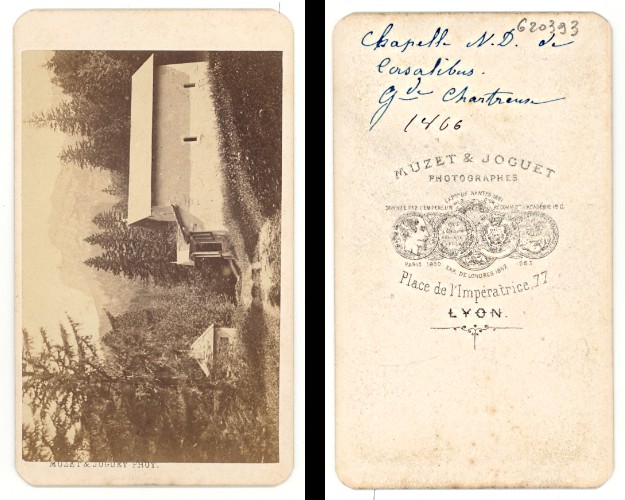 MUZET & JOGUET PHOT.
620393
Chapelle N.D. de
Casalibus.
Gde Chartreuse
1466
MUZET & JOGUET
PHOTOGRAPHES
Place de l'Impératrice, 77
LYON.